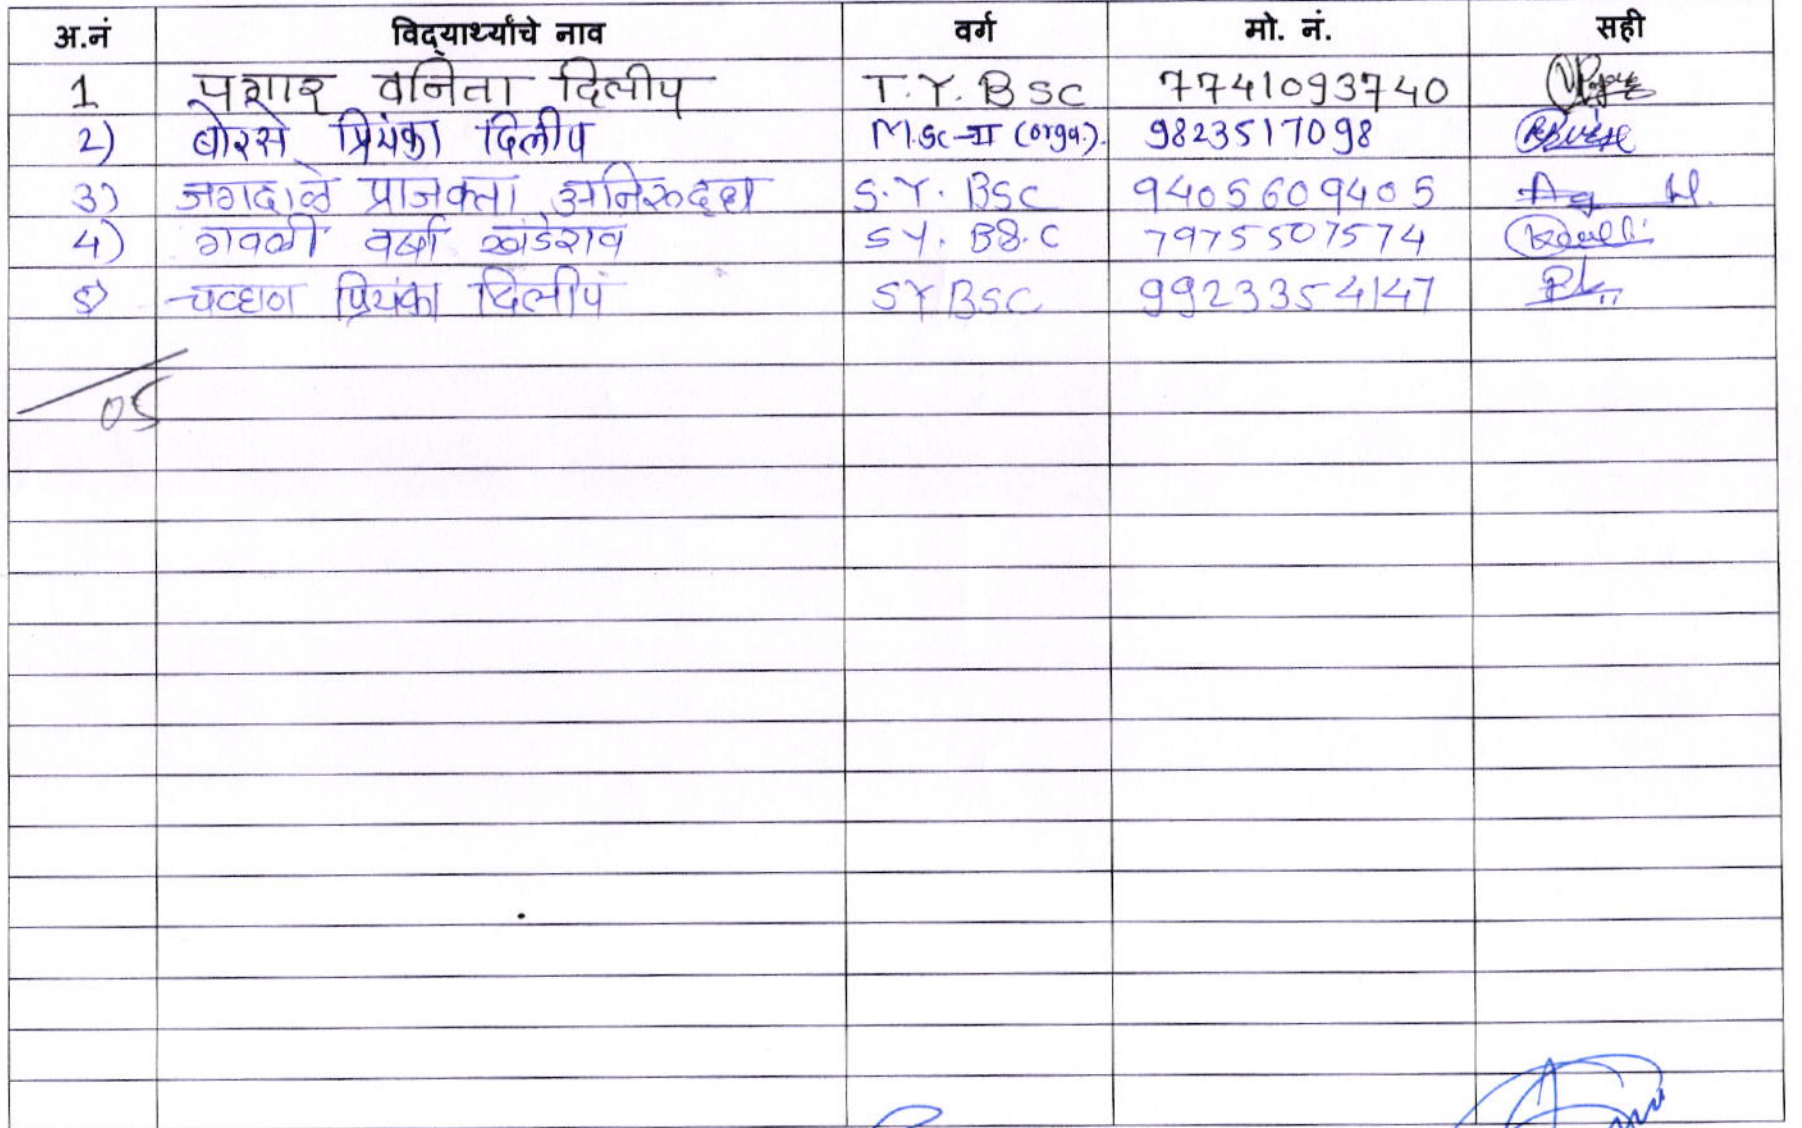 अ.नं विद्यार्थ्यांचे नाव वर्ग मो. नं. सही
1 पगार वनिता दिलीप T.Y.BSC 7741093740
2) बोरसे प्रियंका दिलीप M.Sc-II (orga.). 9823517098
3) जगदाळे प्राजक्ता अनिरूद्ध S.Y. BSC 9405609405
4) गवळी वर्षा खंडेराव SY. BS.C 7975507574
5) चव्हाण प्रियंका दिलीप SYBSC 9923354147
05